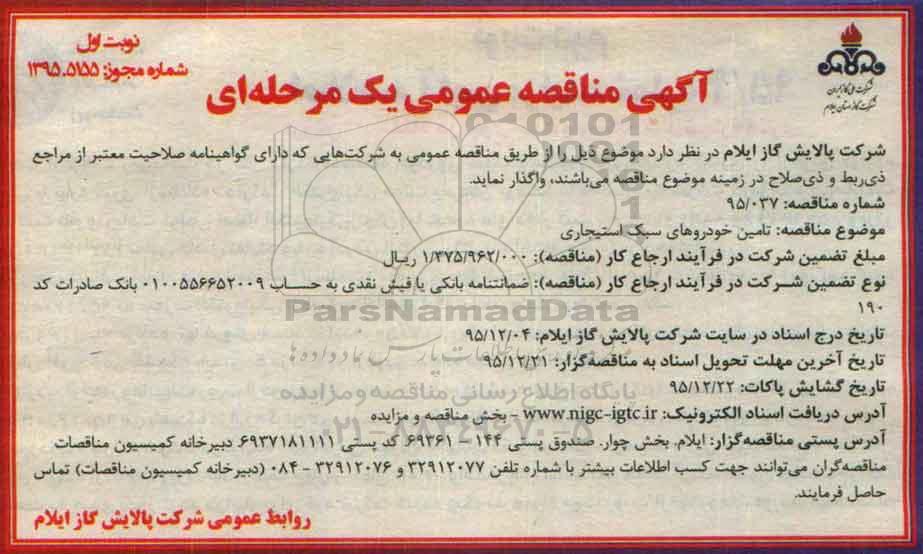 نوبت اول
شماره مجوز: ۱۳۹۵.۵۱۵۵
شرکت ملی گاز ایران
شرکت گاز استان ایلام
آگهی مناقصه عمومی یک مرحله‌ای
شرکت پالایش گاز ایلام در نظر دارد موضوع ذیل را از طریق مناقصه عمومی به شرکت‌هایی که دارای گواهینامه صلاحیت معتبر از مراجع
ذی‌ربط و ذی‌صلاح در زمینه موضوع مناقصه می‌باشند، واگذار نماید.
شماره مناقصه: ۹۵/۰۳۷
موضوع مناقصه: تامین خودروهای سبک استیجاری
مبلغ تضمین شرکت در فرآیند ارجاع کار (مناقصه): ۱/۳۷۵/۹۶۲/۰۰۰ ریـال
نوع تضمین شرکت در فرآیند ارجاع کار (مناقصه): ضمانتنامه بانکی یا فیش نقدی به حساب ۰۱۰۰۵۵۶۶۵۲۰۰۹ بانک صادرات کد
۱۹۰
تاریخ درج اسناد در سایت شرکت پالایش گاز ایلام: ۹۵/۱۲/۰۴
تاریخ آخرین مهلت تحویل اسناد به مناقصه‌گزار: ۹۵/۱۲/۲۱
تاریخ گشایش پاکات: ۹۵/۱۲/۲۲
آدرس دریافت اسناد الکترونیک: www.nigc-igtc.ir - بخش مناقصه و مزایده
آدرس پستی مناقصه‌گزار: ایلام. بخش چوار. صندوق پستی ۱۴۴ - ۶۹۳۶۱ کد پستی ۶۹۳۷۱۸۱۱۱۱ دبیرخانه کمیسیون مناقصات
مناقصه‌گران می‌توانند جهت کسب اطلاعات بیشتر با شماره تلفن ۳۲۹۱۲۰۷۷ و ۳۲۹۱۲۰۷۶ - ۰۸۴ (دبیرخانه کمیسیون مناقصات) تماس
حاصل فرمایند.
روابط عمومی شرکت پالایش گاز ایلام
ParsNamadData
پایگاه اطلاع رسانی مناقصه و مزایده